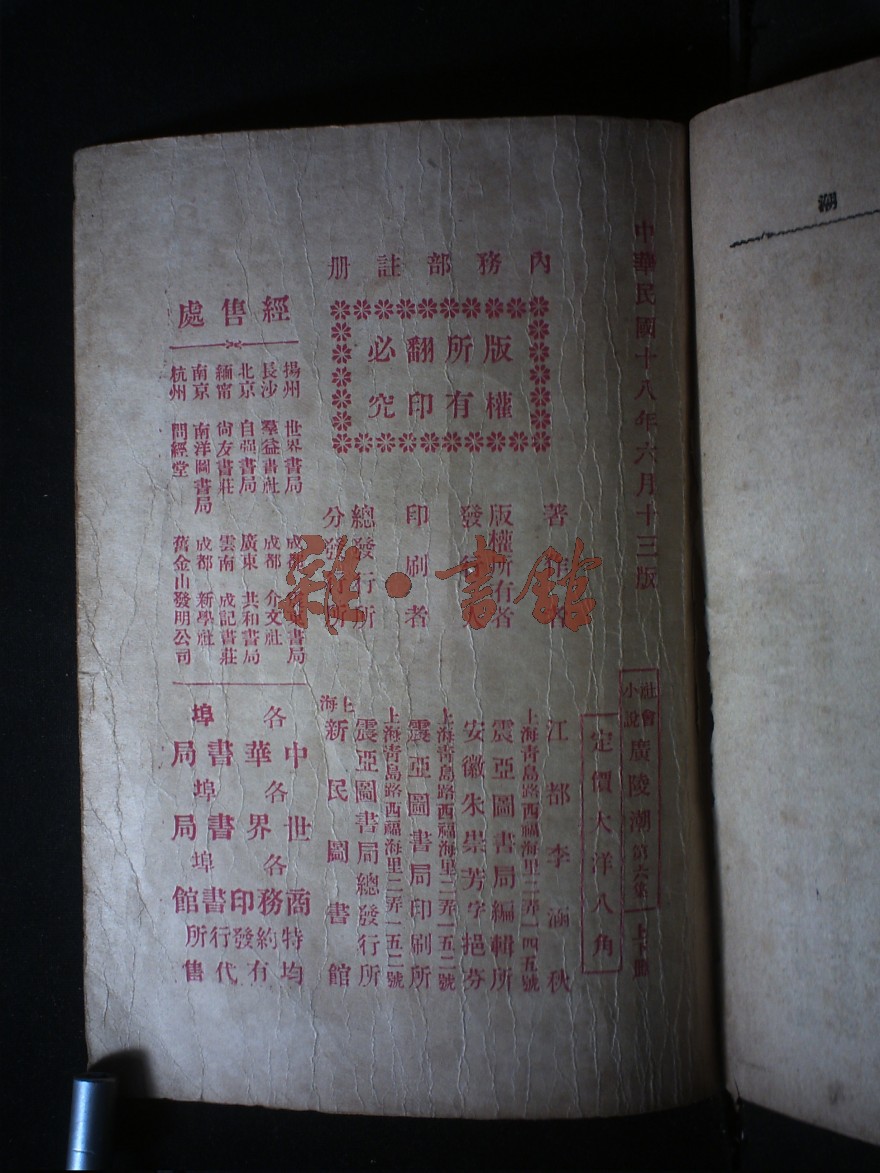 潮
中華民國十八年六月十三版
社會小說 廣陵潮 第六集 上下冊
定價大洋八角
內務部註册
版權所有
翻印必究
著作者 江都李涵秋
上海青島路西福海里二弄一四五號
版權所有者 震亞圖書局編輯所
發行人 安徽朱崇芳字挹芬
上海青島路西福海里二弄一五二號
印刷者 震亞圖書局印刷所
上海青島路西福海里二弄一五二號
總發行所 震亞圖書局總發行所
分發行所 上海新民圖書館
經售處
揚州 世界書局
長沙 羣益書社
北京 自强書局
緬甯 尙友書莊
南京 南洋圖書局
杭州 問經堂
成都 書局
成都 介文社
廣東 共和書局
雲南 成記書莊
成都 新學社
舊金山發明公司
中華書局各埠
世界書局各埠
商務印書館各埠
特約發行所
均有代售
雜·書館